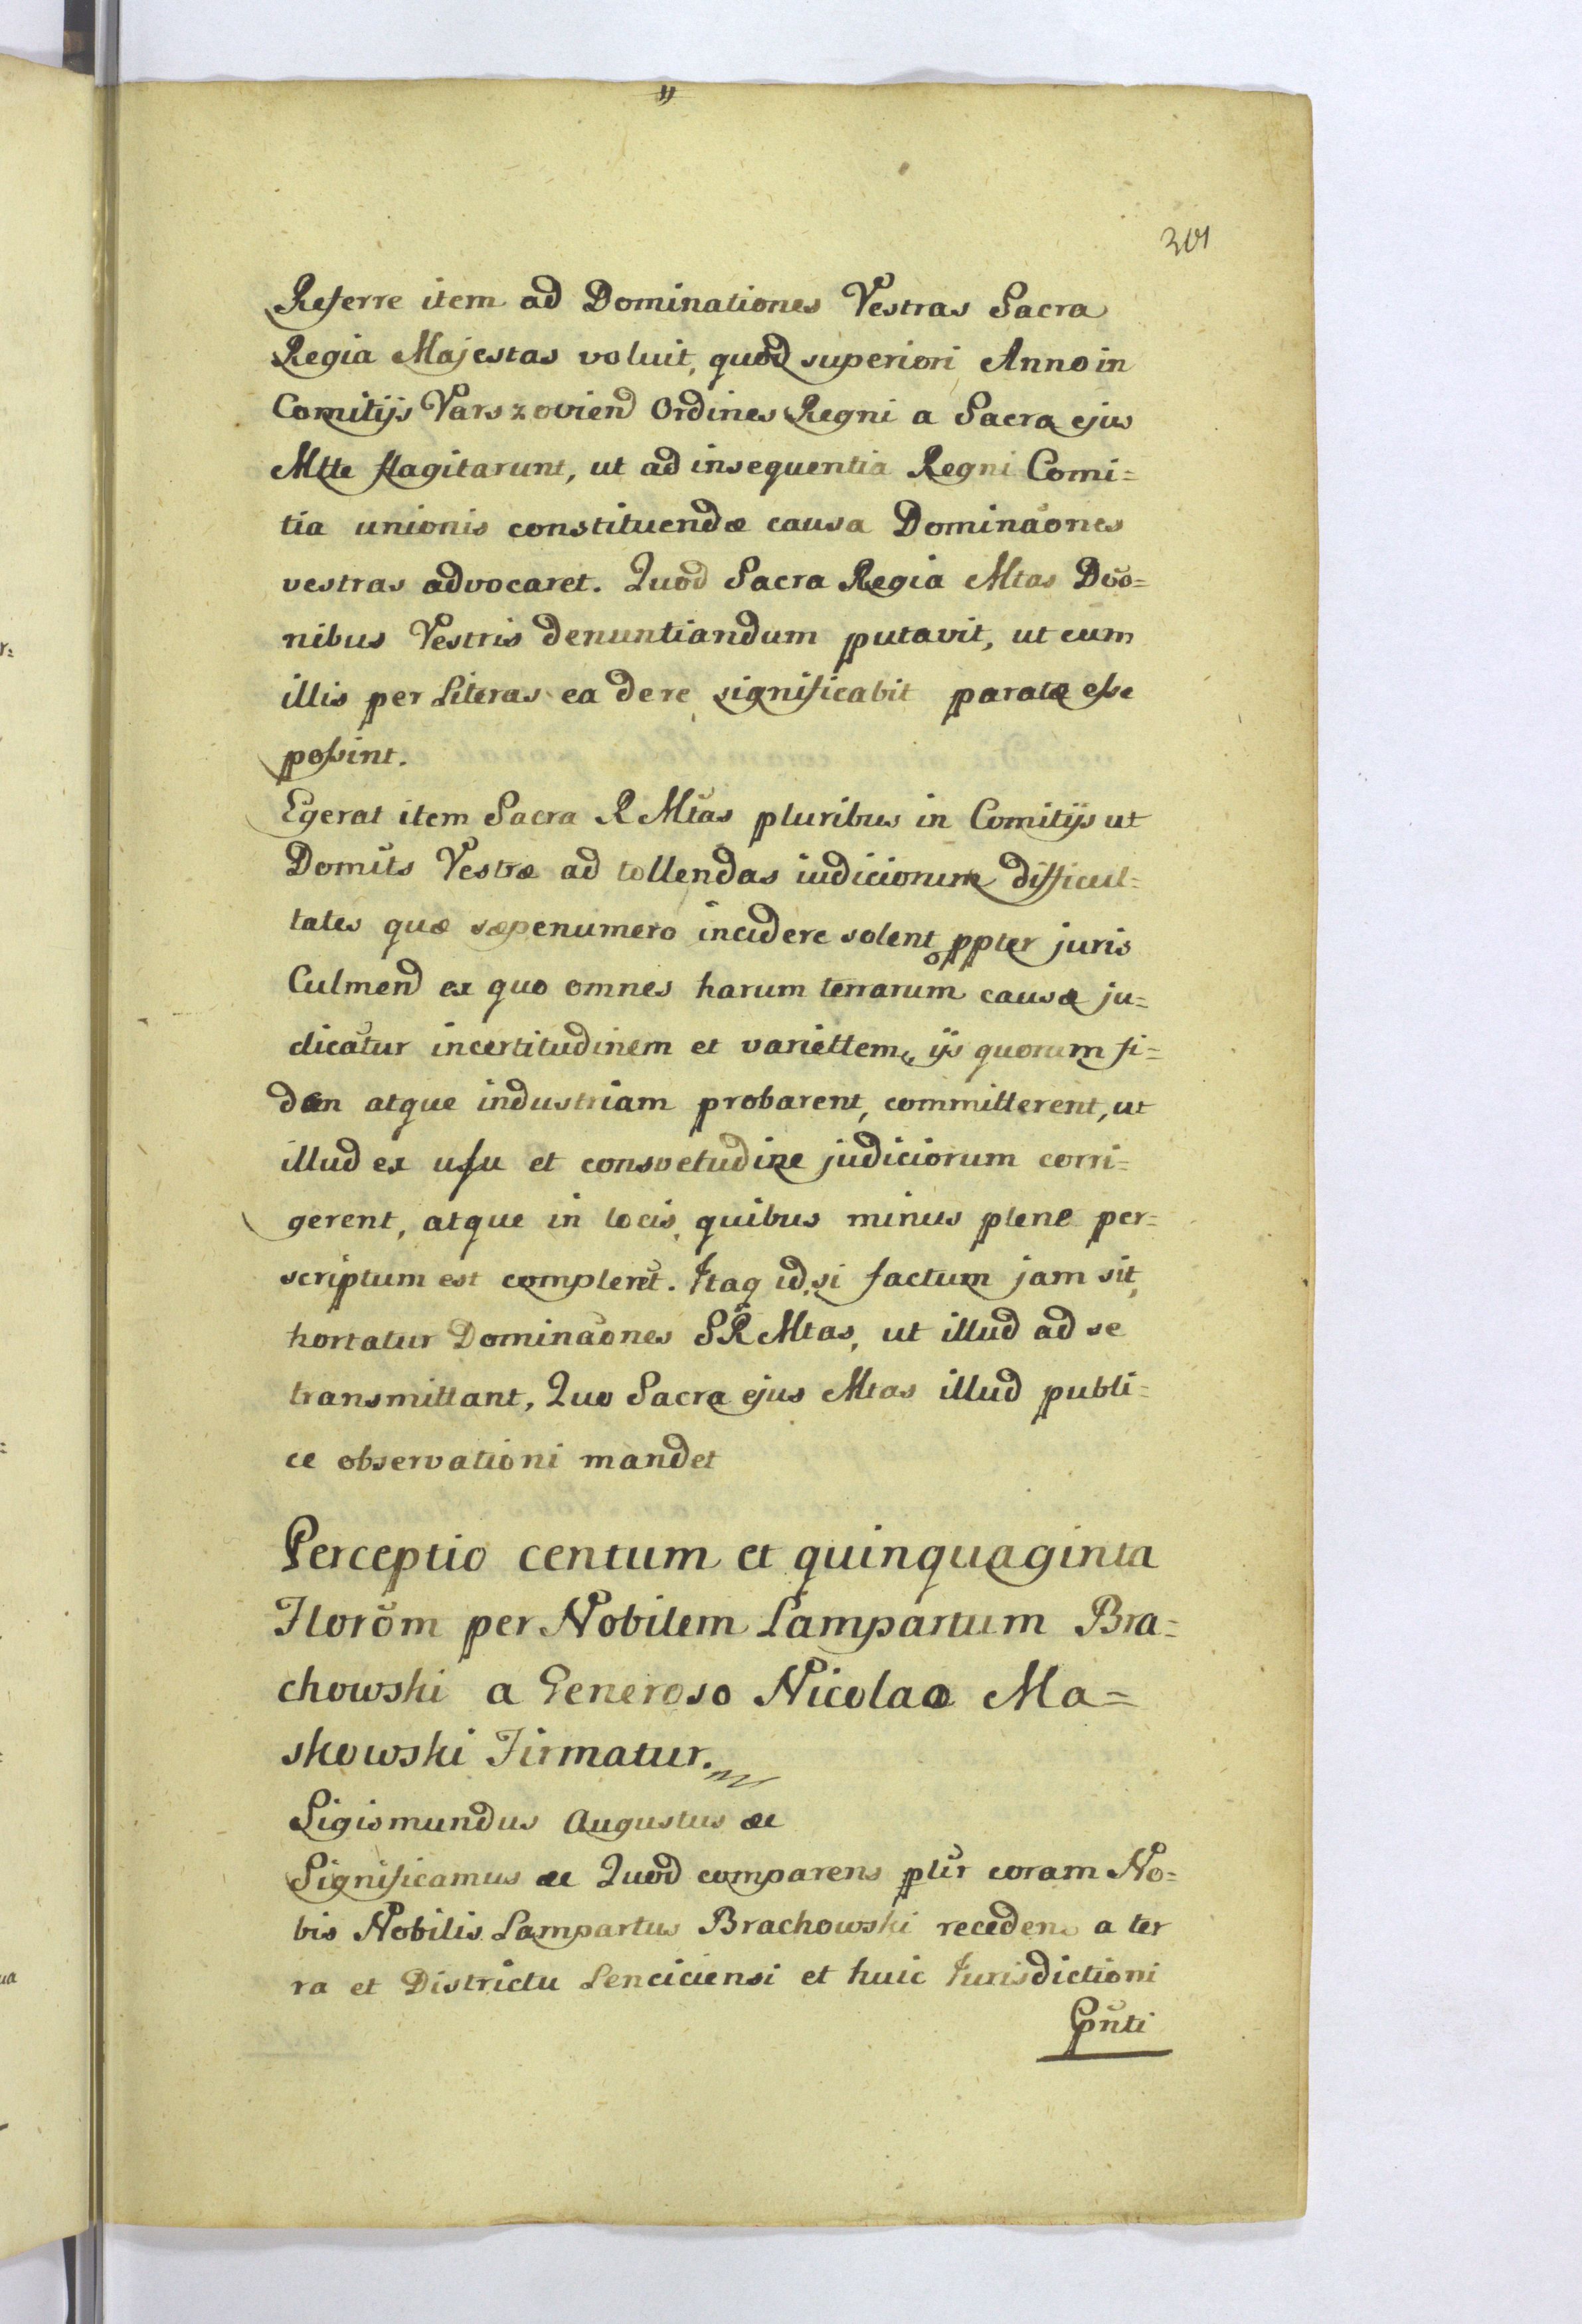 301
Referre item ad Dominationes Vestras Sacra
Regia Majestas voluit, quod superiori Anno in
Comitijs Varszovien̄ Ordines Regni a Sacra ejus
Mtte flagitarunt, ut ad insequentia Regni Comi=
tia unionis constituendæ causa Dominãones
vestras advocaret. Quod Sacra Regia Mtas Dõo=
nibus Vestris denuntiandum putavit, ut cum
illis per Literas ea de re significabit paratæ eſse
poſsint.
Egerat item Sacra R Mtãs pluribus in Comitijs ut
Domũts Vestræ ad tollendas iudiciorum difficul=
tates quæ sæpenumero incidere solent ppter juris
Culmen̄ ex quo omnes harum terrarum causæ ju=
dicãtur incertitudinem et variettem, ijs quorum fi=
dem atque industriam probarent, committerent, ut
illud ex uſu et consvetudine judiciorum corri=
gerent, atque in locis, quibus minus plene per=
scriptum est complerẽt. Itaq id, si factum jam sit,
hortatur Dominãones S R̃ Mtas, ut illud ad se
transmittant, Quo Sacra ejus Mtas illud publi=
ce observationi mandet
Perceptio centum et quinquaginta
Florõm per Nobilem Lampartum Bra=
chowski a Generoso Nicolao Ma=
skowski Firmatur.
Sigismundus Augustus &c
Significamus &c Quod comparens pl̃r coram No=
bis Nobilis Lampartus Brachowski recedens a ter
ra et Districtu Lenciciensi et huic Jurisdictioni
Pñti